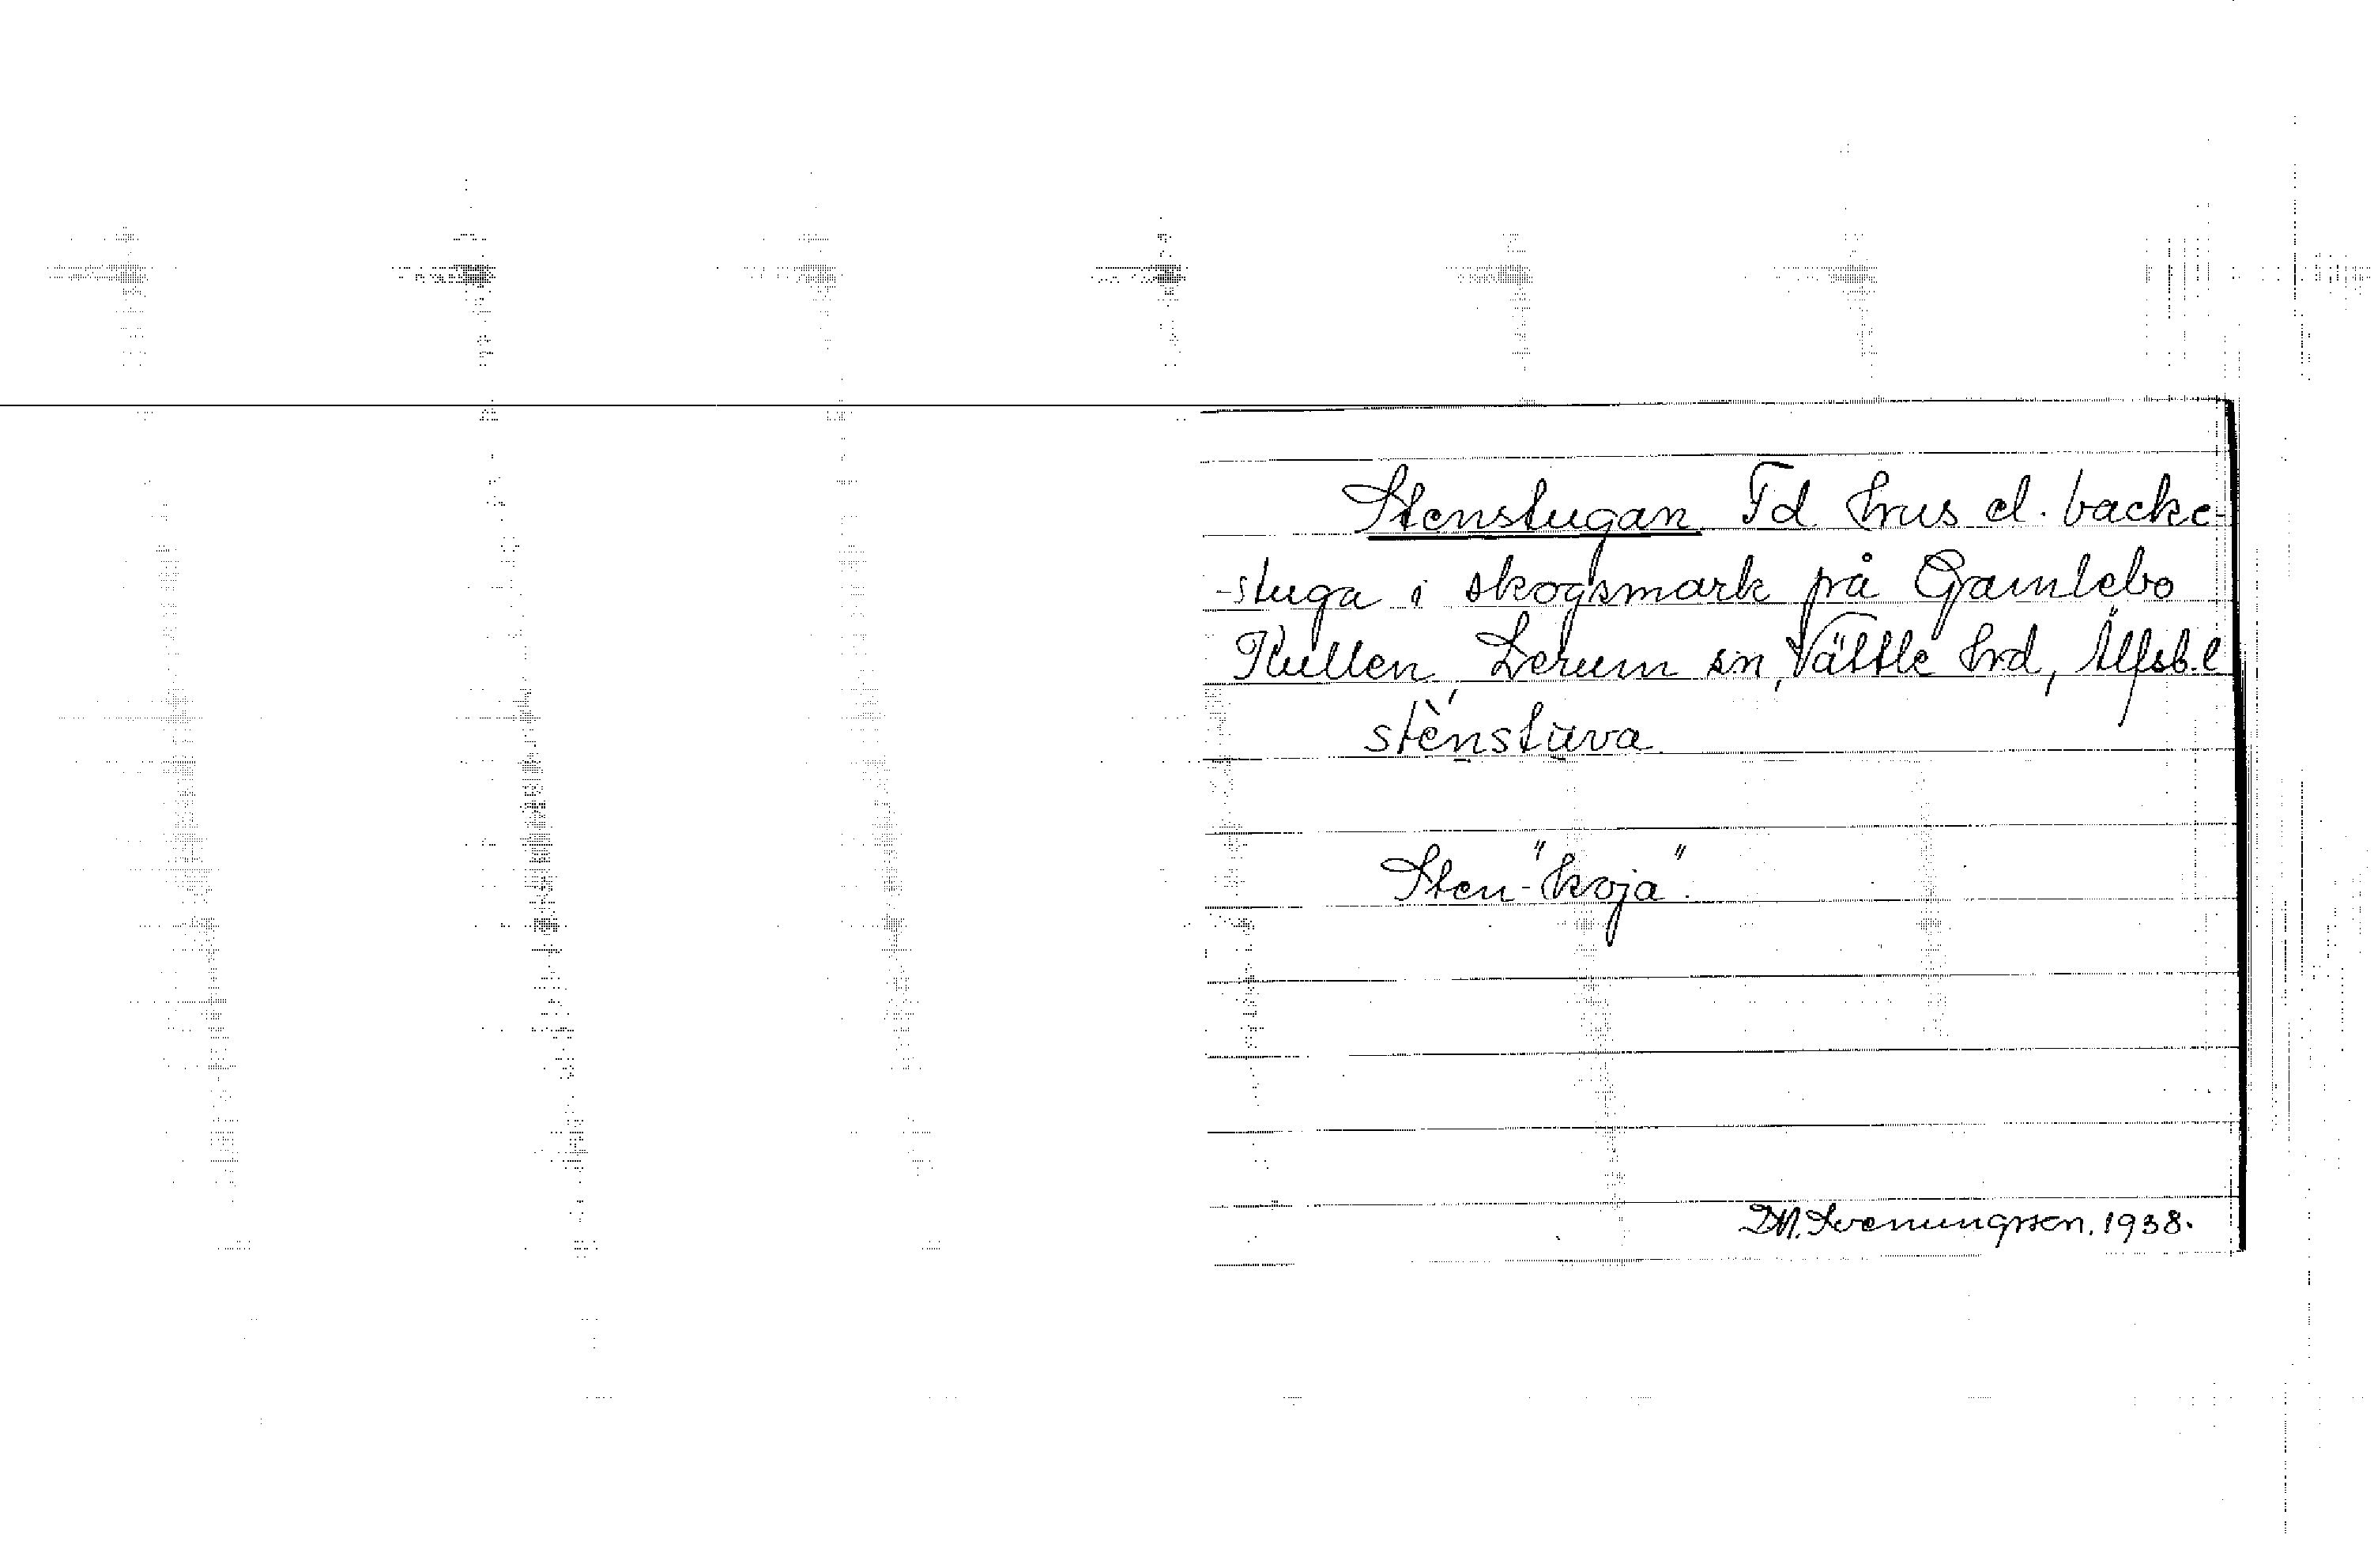 Stenstugan Fd hus el. backe-
-stuga i skogsmark på Gamlebo
Kullen, Lerum sn, Vättle hrd, Älfsb. l
stènstu̇va
Sten-"koja".
D.N. Svenungsson. 1938.